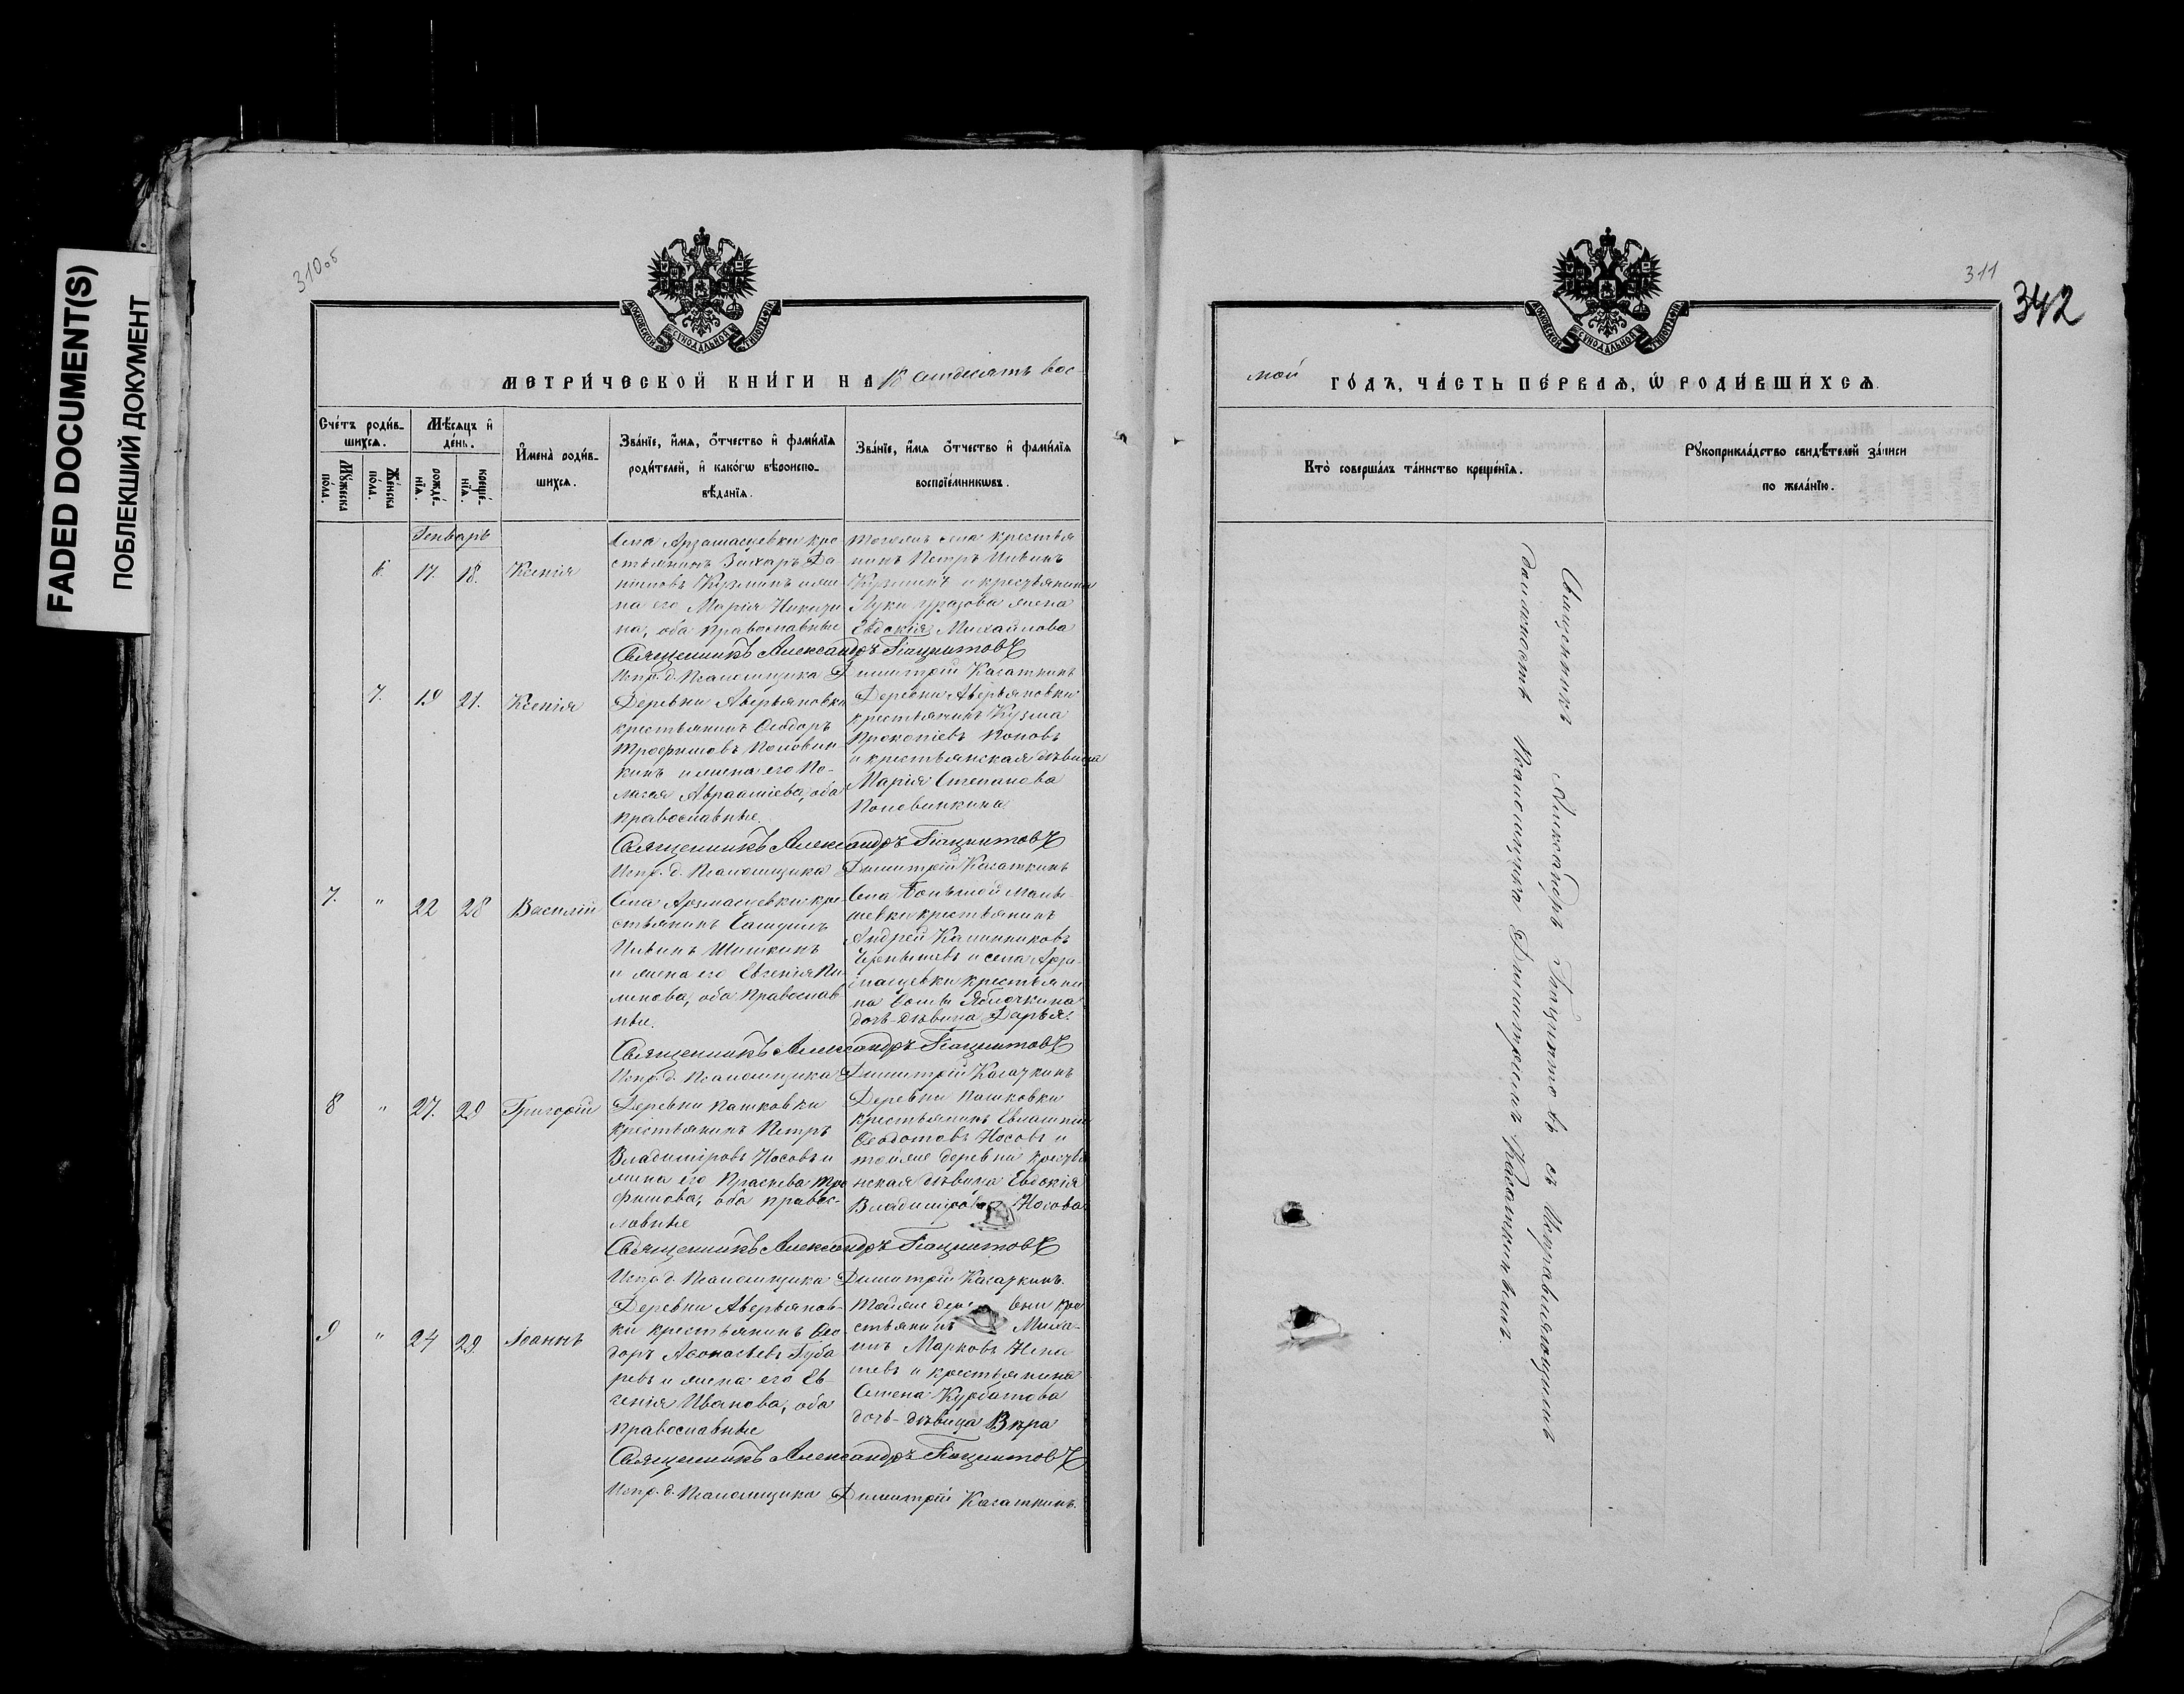 FADED DOCUMENT(S)
ПОБЛЕКШИЙ ДОКУМЕНТ
310 об
311
342
МОСКОВСКОЙ СѴНОДАЛЬНОЙ ТИПОГРАФІИ
МЕТРИ́ЧЕСКОЙ КНИ́ГИ НА 18 семдесятъ вос-
Сче́тъ роди́в-
шихся.
Мѣ́сяцъ и҆
де́нь.
Му́жеска
по́ла.
Же́нска
по́ла.
рожде́-
нїя.
креще́-
нїя.
И҆мена̀ роди́в-
шихся.
Зва́нїе, и҆́мя, ѻ҆́тчество и҆ фами́лїя
роди́телей, и҆ како́гѡ вѣроиспо-
вѣ́данїя.
Зва́нїе, и҆́мя ѻ҆́тчество и҆ фами́лїя
воспрїе́мникѡвъ.
Генварь
6. 17. 18. Ксенія
Села Арзамасцевки кре
стьянинъ Захаръ Да
ниловъ Кузминъ и же
на его Марія Никити
на, оба православные
Тогоже села крестья
нинъ Петръ Ильинъ
Кузминъ и крестьянина
Луки жена
Евдокія Михайлова
Священникъ Александръ Гіацинтовъ
Испр. д. Псаломщика Димитрій Касаткинъ
7. 19 21. Ксенія
Деревни Аверьяновки
крестьянинъ Ѳеодоръ
Трофимовъ Половин-
кинъ и жена его Пе-
лагея Авраамiева, оба
православные.
Деревни Аверьяновки
крестьянинъ Кузма
Прокопіевъ Поповъ
и крестьянская дѣвица
Марія Степанова
Половинкина
Священникъ Александръ Гіацинтовъ
Испр. д. Псаломщика Димитрій Касаткинъ
7. " 22 28 Василій
Села Арзмасцевки кре
стьянинъ
Ильинъ Шишкинъ
и жена его Евгенія Фи-
липова, оба православ
ные.
Села Большой Малы-
шевки крестьянинъ
Андрей Калинниковъ
Чернышевъ и села Арза-
масцевки крестьяни
на Ѳомы Яблочкина
дочь-дѣвица Дарья.
Священникъ Александръ Гіацинтовъ
Испр. д. Псаломщика Димитрій Касаткинъ
8 " 27. 29 Григорій
Деревни Пашковки
крестьянинъ Петръ
Владиміровъ Носовъ и
жена его Праскева Тро
фимова, оба право-
славные
Деревни Пашковки
крестьянинъ Евлампій
Ѳеодотовъ Носовъ и
тойже деревни крестья
нская дѣвица Евдокія
Владимірова Носова
Священникъ Александръ Гіацинтовъ
Испр. д. Псаломщика Димитрій Касаткинъ.
9 " 24 29. Іоаннъ
Деревни Аверьянов-
ки крестьянинъ Ѳео
доръ Аѳонасьевъ Губа
ревъ и жена его Ев-
генія Иванова, оба
православные
Тойже деревни кре
стьянинъ Миха-
илъ Марковъ
и крестьянина
Семена Курбатова
дочь-дѣвица Вѣра
Священникъ Александръ Гіацинтовъ
Испр. д. Псаломщика Димитрій Касаткинъ.
МОСКОВСКОЙ СѴНОДАЛЬНОЙ ТИПОГРАФІИ
мой ГО́ДЪ, ЧА́СТЬ ПЕ́РВАЯ, Ѡ҆ РОДИ́ВШИХСЯ.
Кто̀ соверша́лъ та́инство креще́нїя.
Рꙋкоприкла́дство свидѣ́телей за́писи
по жела́нїю.
Священникъ Александръ Гіацинтовъ съ Исправляющимъ
должность Псаломщика Димитріемъ Касаткинымъ.